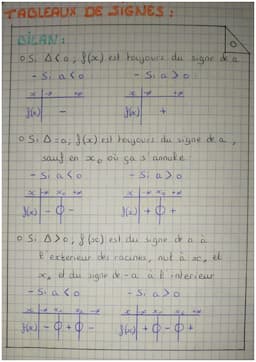 TABLEAUX DE SIGNES :
BILAN :
o Si Δ < 0, f(x) est toujours du signe de a
- Si a < 0 - Si a > 0 :
x -∞ +∞ x -∞ +∞
f(x) - f(x) +
o Si Δ = 0, f(x) est toujours du signe de a,
sauf en x₀ où ça s'annule
- Si a < 0 - Si a > 0
x -∞ x₀ +∞ x -∞ x₀ +∞
f(x) - 0 - f(x) + 0 +
o Si Δ > 0, f(x) est du signe de a à
l'exterieur des racines, nul à x₁ et
x₂ et du signe de -a à l'interieur
- Si a < 0 - Si a > 0
x -∞ x₁ x₂ +∞ x -∞ x₁ x₂ +∞
f(x) - 0 + 0 - f(x) + 0 - 0 +